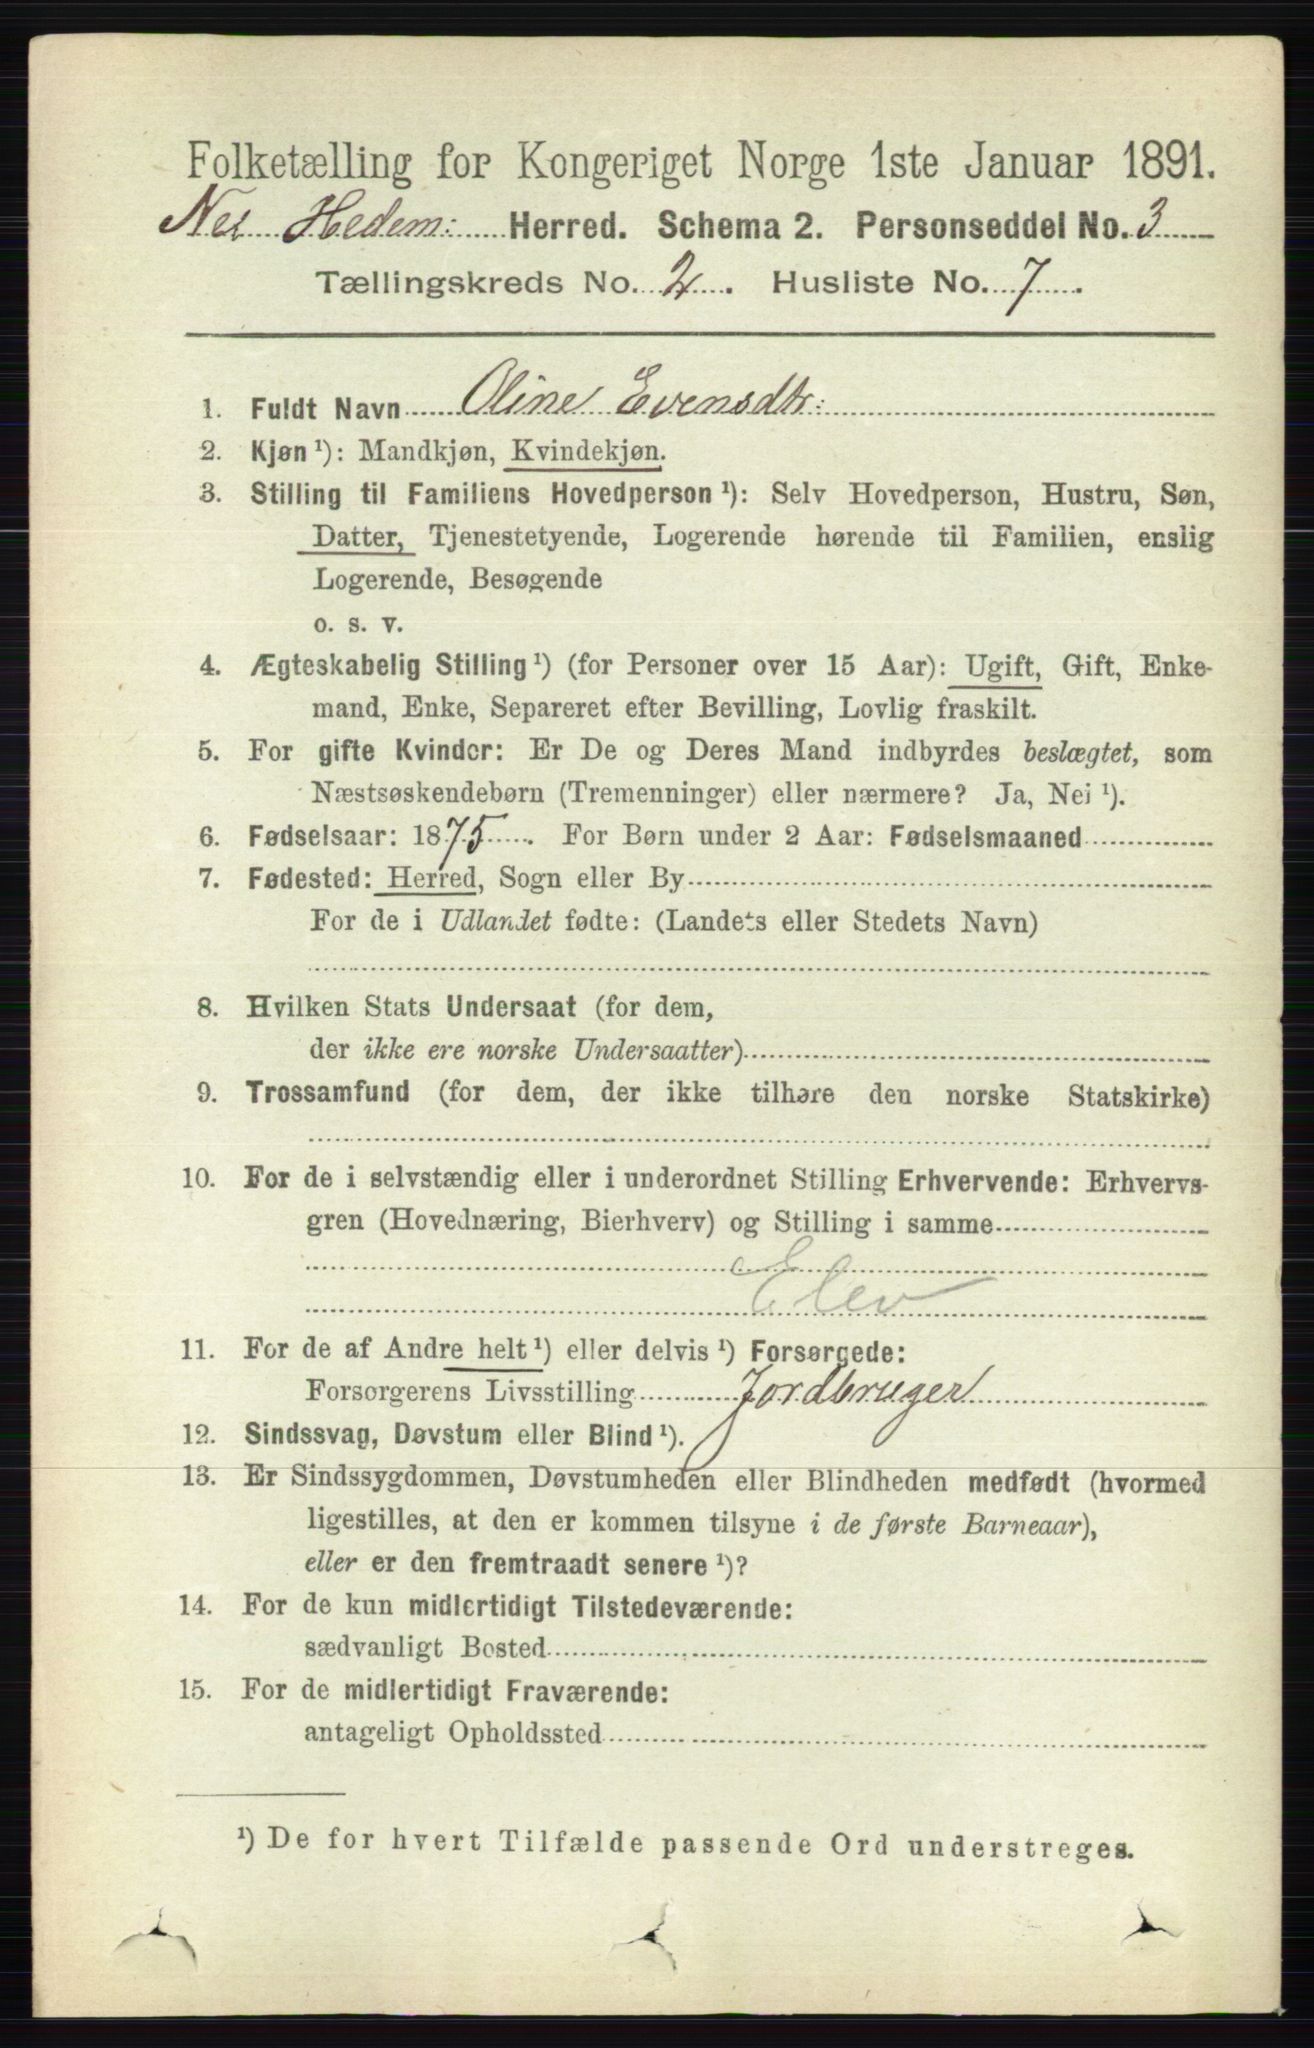 Folketælling for Kongeriget Norge 1ste Januar 1891.
Nes Hedem: Herred. Schema 2. Personseddel No. 3
Tællingskreds No. 2. Husliste No. 7.
1. Fuldt Navn Oline Evensdtr:
2. Kjøn ¹): Mandkjøn, Kvindekjøn.
3. Stilling til Familiens Hovedperson ¹): Selv Hovedperson, Hustru, Søn,
Datter, Tjenestetyende, Logerende hørende til Familien, enslig
Logerende, Besøgende
o. s. v.
4. Ægteskabelig Stilling ¹) (for Personer over 15 Aar): Ugift, Gift, Enke-
mand, Enke, Separeret efter Bevilling, Lovlig fraskilt.
5. For gifte Kvinder: Er De og Deres Mand indbyrdes beslægtet, som
Næstsøskendebørn (Tremenninger) eller nærmere? Ja, Nei ¹).
6. Fødselsaar: 1875. For Børn under 2 Aar: Fødselsmaaned
7. Fødested: Herred, Sogn eller By
For de i Udlandet fødte: (Landets eller Stedets Navn)
8. Hvilken Stats Undersaat (for dem,
der ikke ere norske Undersaatter)
9. Trossamfund (for dem, der ikke tilhøre den norske Statskirke)
10. For de i selvstændig eller i underordnet Stilling Erhvervende: Erhvervs-
gren (Hovednæring, Bierhverv) og Stilling i samme
Elev
11. For de af Andre helt ¹) eller delvis ¹) Forsørgede:
Forsørgerens Livsstilling Jordbruger
12. Sindssvag, Døvstum eller Blind ¹).
13. Er Sindssygdommen, Døvstumheden eller Blindheden medfødt (hvormed
ligestilles, at den er kommen tilsyne i de første Barneaar),
eller er den fremtraadt senere ¹)?
14. For de kun midlertidigt Tilstedeværende:
sædvanligt Bosted
15. For de midlertidigt Fraværende:
antageligt Opholdssted
¹) De for hvert Tilfælde passende Ord understreges.